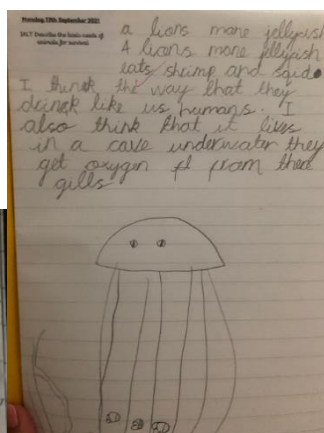 Monday 13th September 2021
IALT Describe the basic needs of
animals for survival.
a lions mane jellyfish
A lions mane jellyfish
eats shrimp and squid.
I think the way that they
drinck like us humans. I
also think that it lives
in a cave underwater they
get oxygen from there
gills